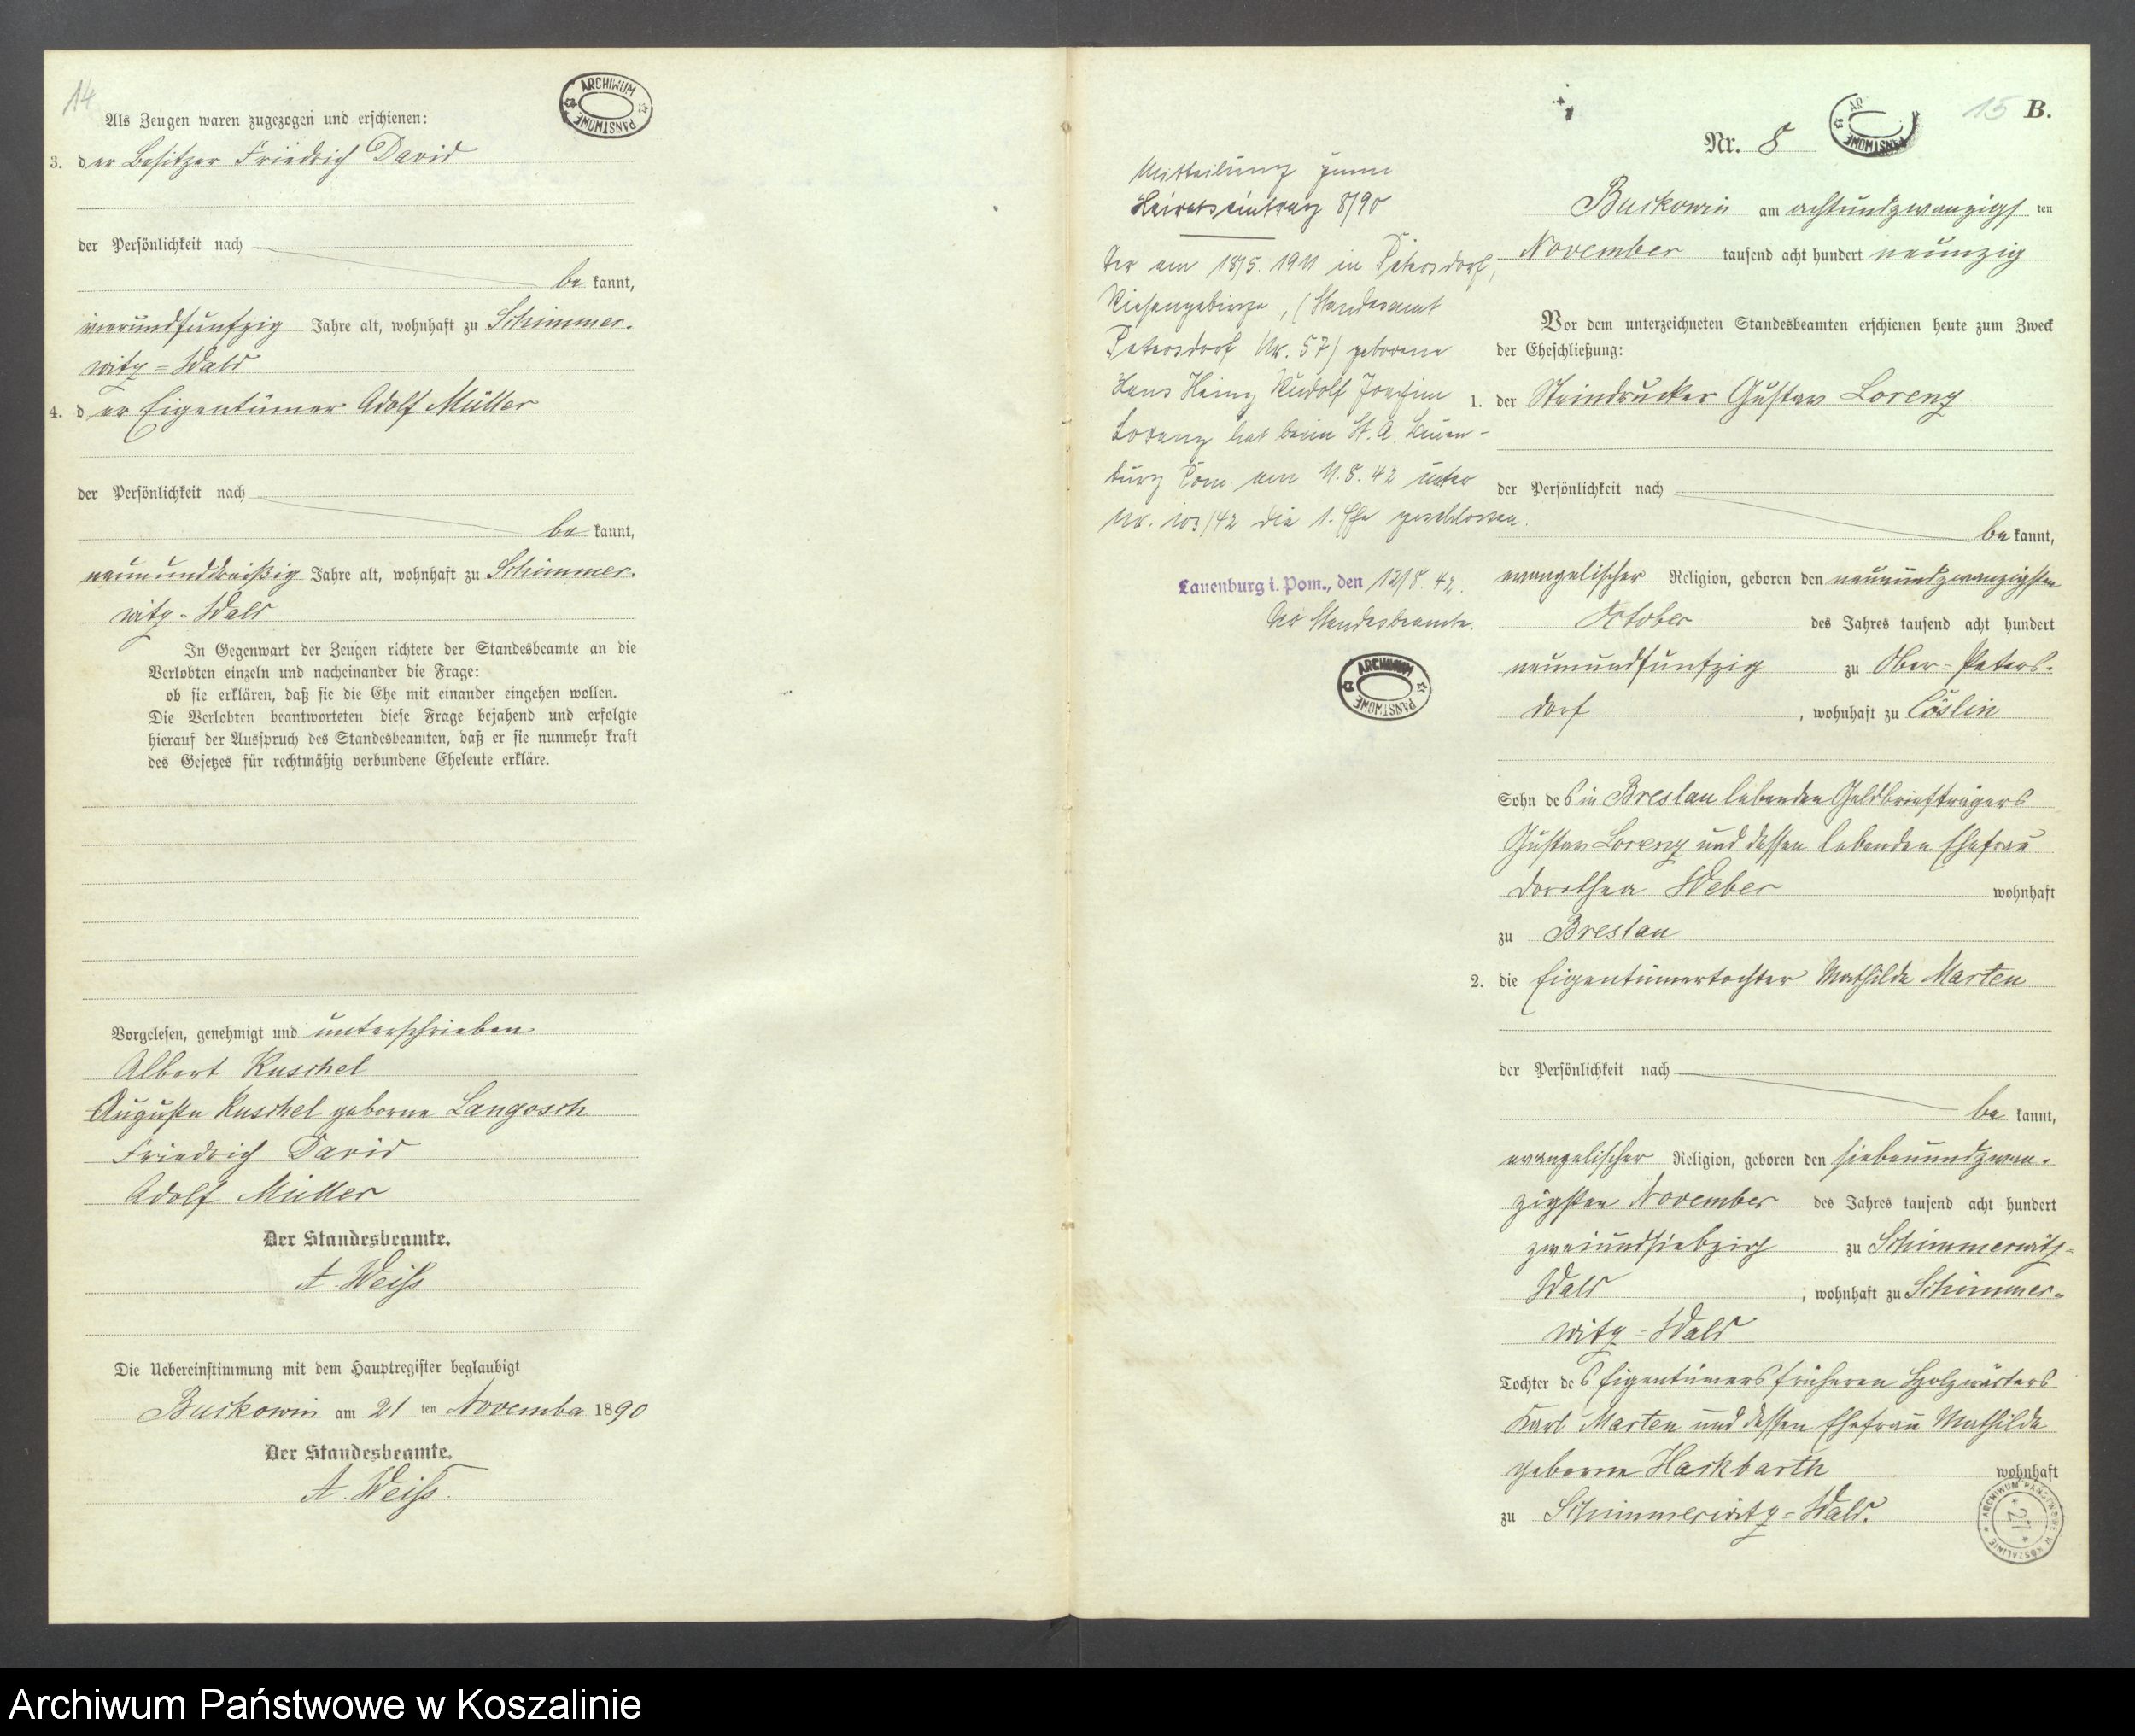 14
ARCHIWUM PAŃSTWOWE
Als Zeugen waren zugezogen und erschienen:
3. der Besitzer Friedrich David
der Persönlichkeit nach
bekannt,
vierundfünfzig Jahre alt, wohnhaft zu Schimmer-
witz-Wald
4. der Eigentümer Adolf Müller
der Persönlichkeit nach
bekannt,
neununddreißig Jahre alt, wohnhaft zu Schimmer-
witz-Wald
In Gegenwart der Zeugen richtete der Standesbeamte an die
Verlobten einzeln und nacheinander die Frage:
ob sie erklären, daß sie die Ehe mit einander eingehen wollen.
Die Verlobten beantworteten diese Frage bejahend und erfolgte
hierauf der Ausspruch des Standesbeamten, daß er sie nunmehr kraft
des Gesetzes für rechtmäßig verbundene Eheleute erkläre.
Vorgelesen, genehmigt und unterschrieben
Albert Kuschel
Auguste Kuschel geborne Langosch
Friedrich David
Adolf Müller
Der Standesbeamte.
A. Weiß
Die Uebereinstimmung mit dem Hauptregister beglaubigt
Buckowin am 21 ten November 1890
Der Standesbeamte.
A. Weiß.
Mitteilung zum
Heiratseintrag 8/90
Der am 18/5. 1911 in Petersdorf,
Riesengebirge, (Standesamt
Petersdorf Nr. 57) geborene
Hans Heinz Rudolf Joachim
Lorenz hat beim St. A. Lauen-
burg Pom. am 11.8.42 unter
Nr. 103/42 die 1. Ehe geschlossen.
Lauenburg i. Pom., den 12/8. 42.
Der Standesbeamte.
ARCHIWUM PAŃSTWOWE
15 B.
Nr. 8
Buckowin am achtundzwanzigsten
November tausend acht hundert neunzig
Vor dem unterzeichneten Standesbeamten erschienen heute zum Zweck
der Eheschließung:
1. der Steindrucker Gustav Lorenz
der Persönlichkeit nach
bekannt,
evangelischer Religion, geboren den neunundzwanzigsten
October des Jahres tausend acht hundert
neunundfünfzig zu Ober-Peters-
dorf, wohnhaft zu Cöslin
Sohn des in Breslau lebenden Geldbriefträgers
Gustav Lorenz und dessen lebenden Ehefrau
Dorothea Weber wohnhaft
zu Breslau
2. die Eigentümertochter Mathilde Marten
der Persönlichkeit nach
bekannt,
evangelischer Religion, geboren den siebenundzwan-
zigsten November des Jahres tausend acht hundert
zweiundsiebzig zu Schimmerwitz-
Wald, wohnhaft zu Schimmer-
witz-Wald
Tochter des Eigentümers früheren Holzwärters
Karl Marten und dessen Ehefrau Mathilde
geborne Hackbarth wohnhaft
zu Schimmerwitz-Wald.
ARCHIWUM PAŃSTWOWE W KOSZALINIE
27
Archiwum Państwowe w Koszalinie